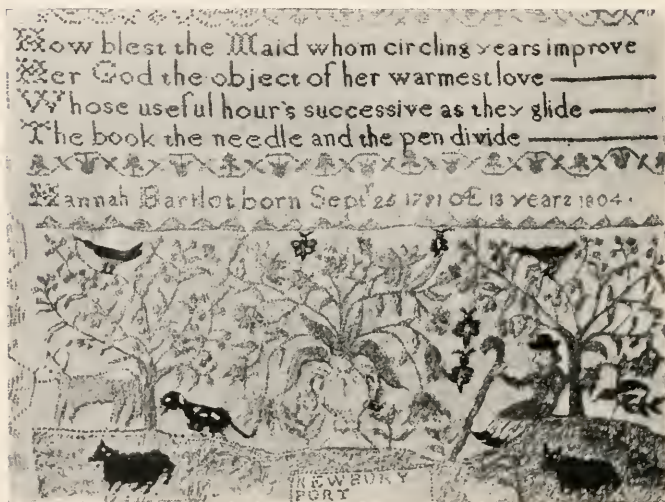 How blest the Maid whom circling years improve
Her God the object of her warmest love
Whose useful hour's successive as they glide
The book the needle and the pen divide
Hannah Bartlot born Sept 25 1791 Æ 13 years 1804.
NEWBURY
PORT